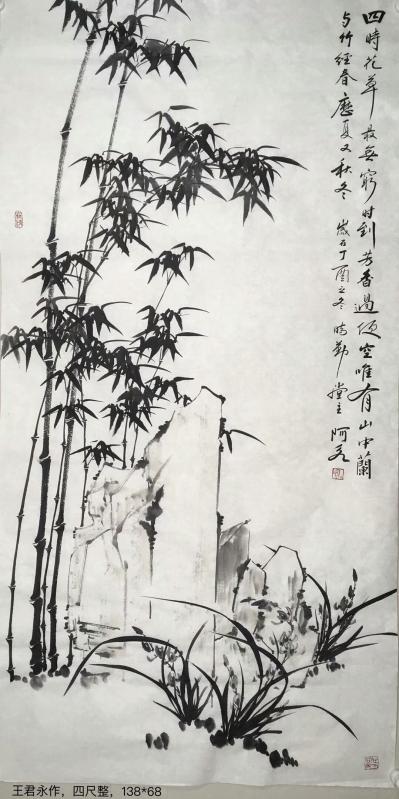 四時花草最無窮時到芳香過便空唯有山中蘭
与竹經春歷夏又秋冬 歲在丁酉之冬 時勤堂主 阿君
王君永作，四尺整，138*68